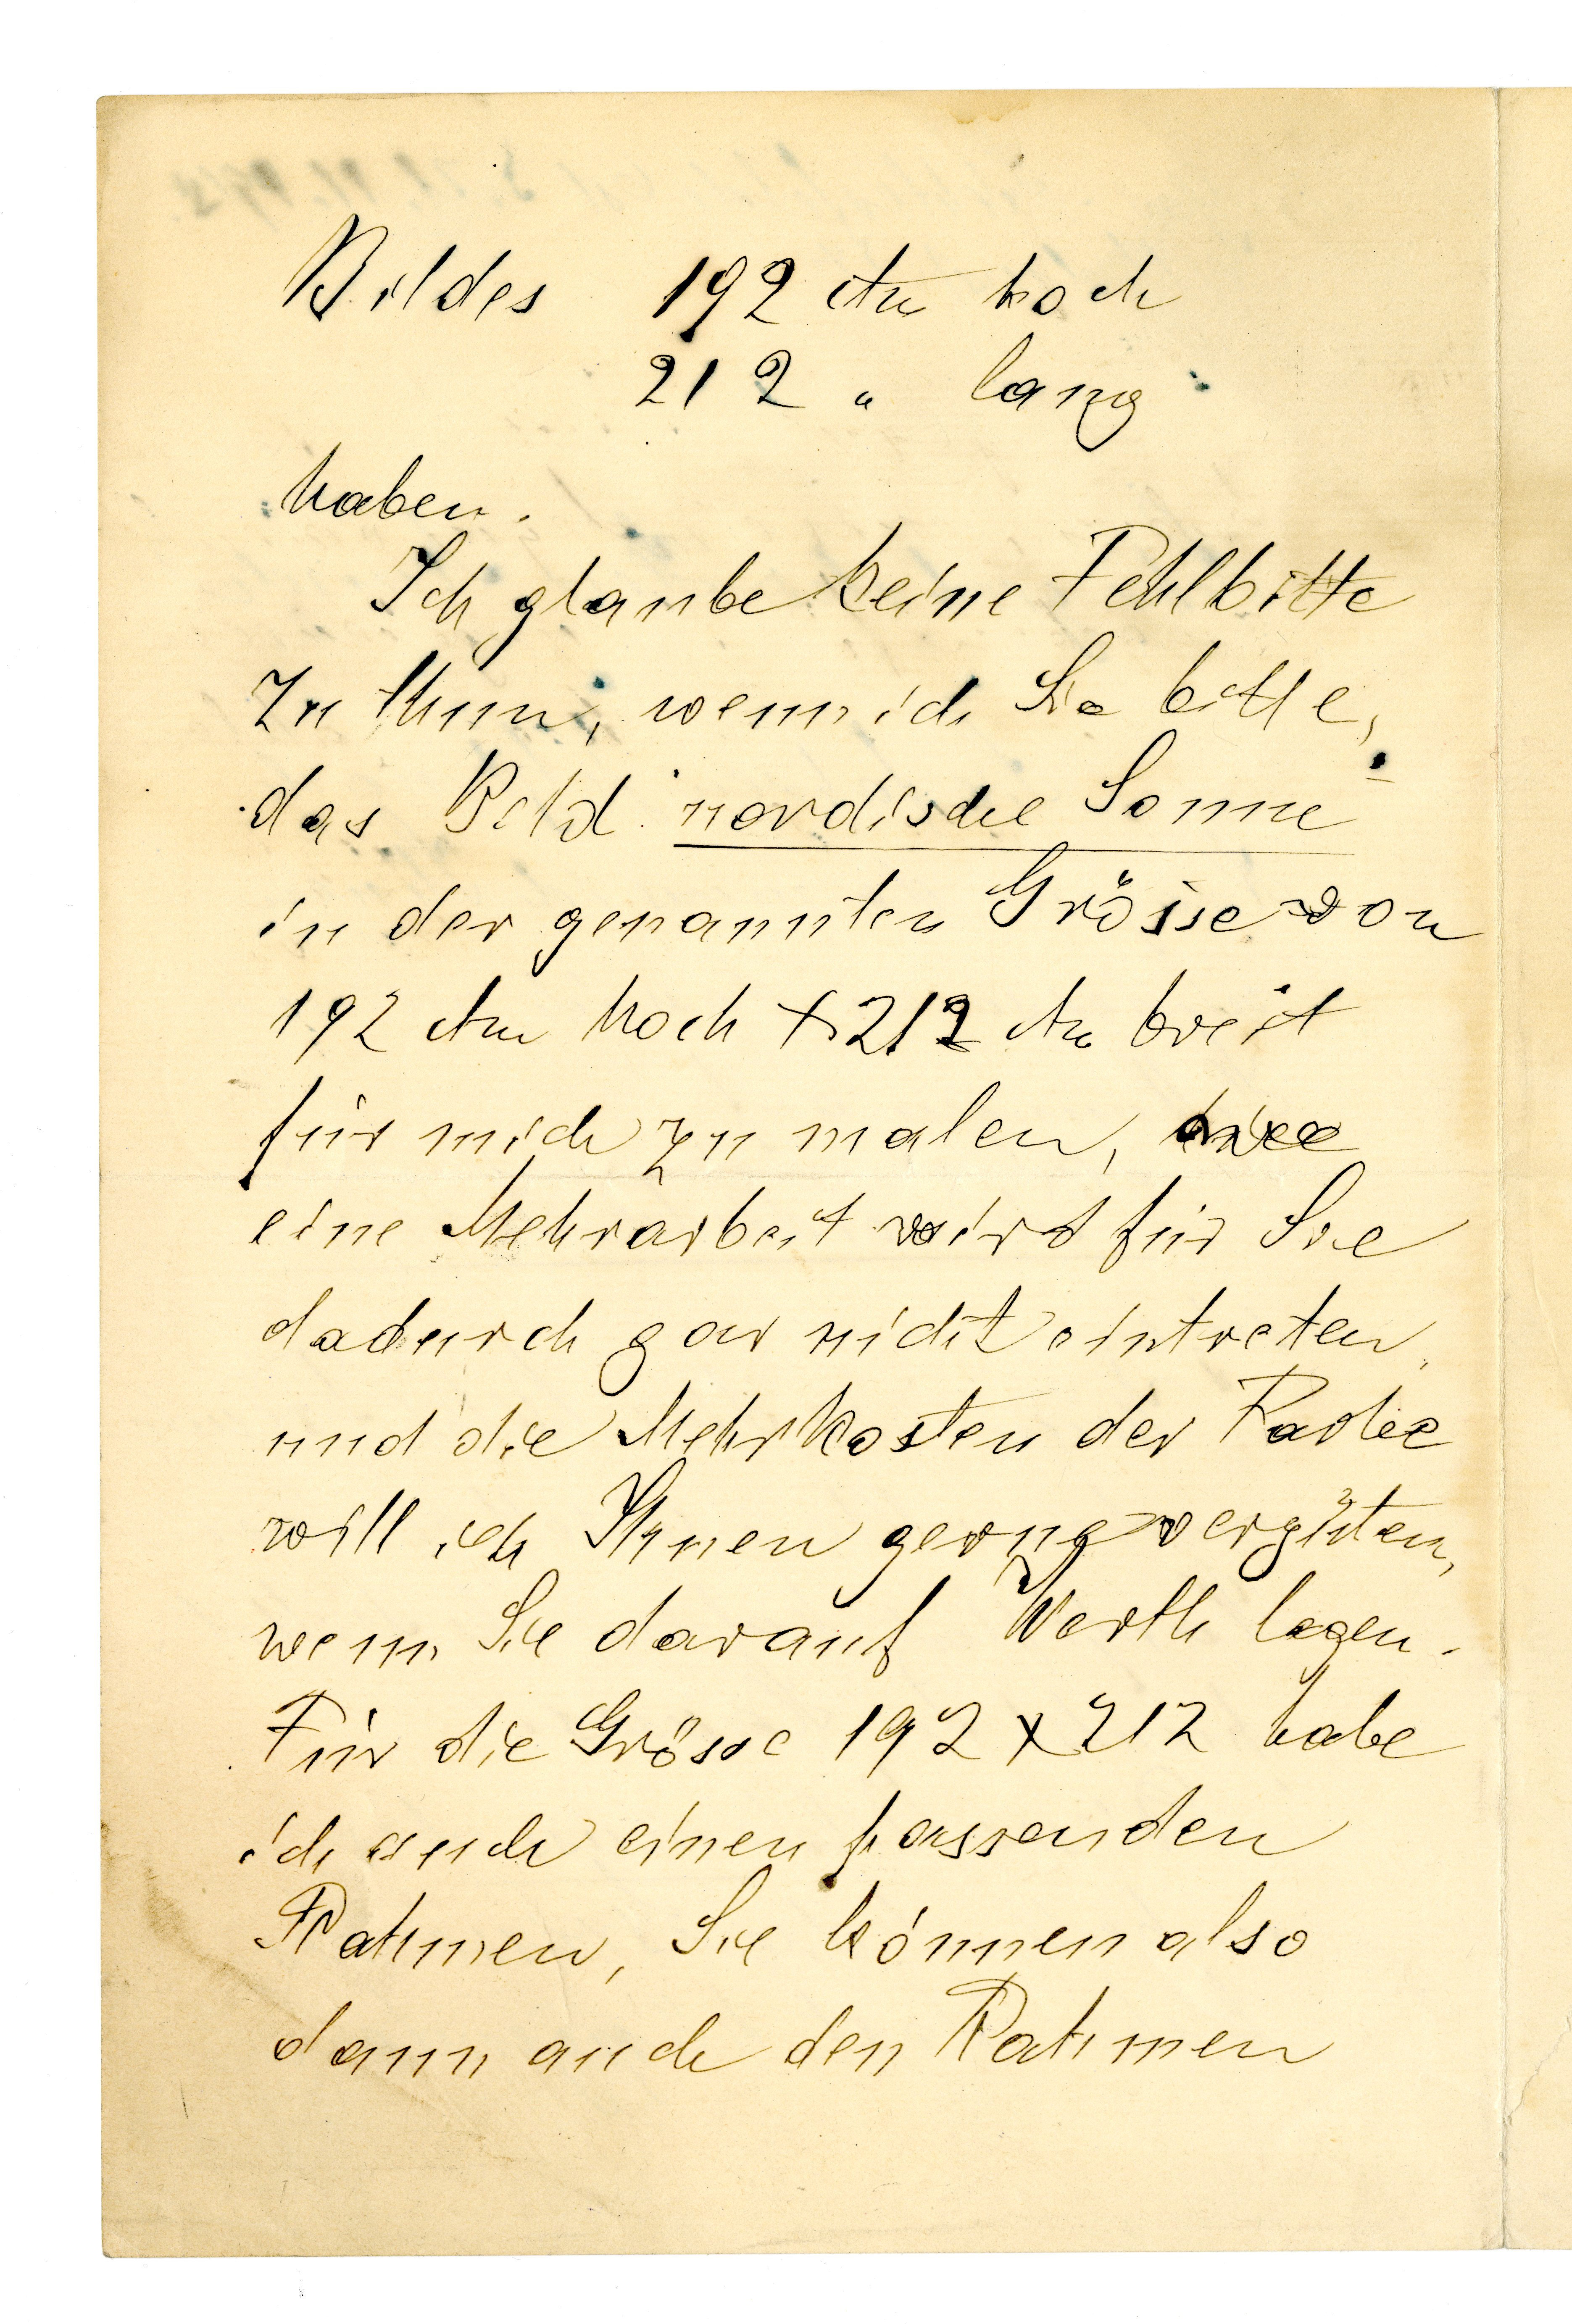 Bildes 192 ctm hoch
212 " lang
haben.
Ich glaube keine Fehlbitte
zu thun, wenn ich Sie bitte,
das Bild "nordische Sonne"
in der genannten Grösse von
192 ctm hoch x 212 ctm breit
für mich zu malen,
eine Mehrarbeit wird für Sie
dadurch gar nicht eintreten,
und die Mehrkosten der Farbe
will ich Ihnen gerne vergüten,
wenn Sie darauf Werth legen.
Für die Grösse 192 x 212 habe
ich auch einen passenden
Rahmen, Sie können also
dann auch den Rahmen